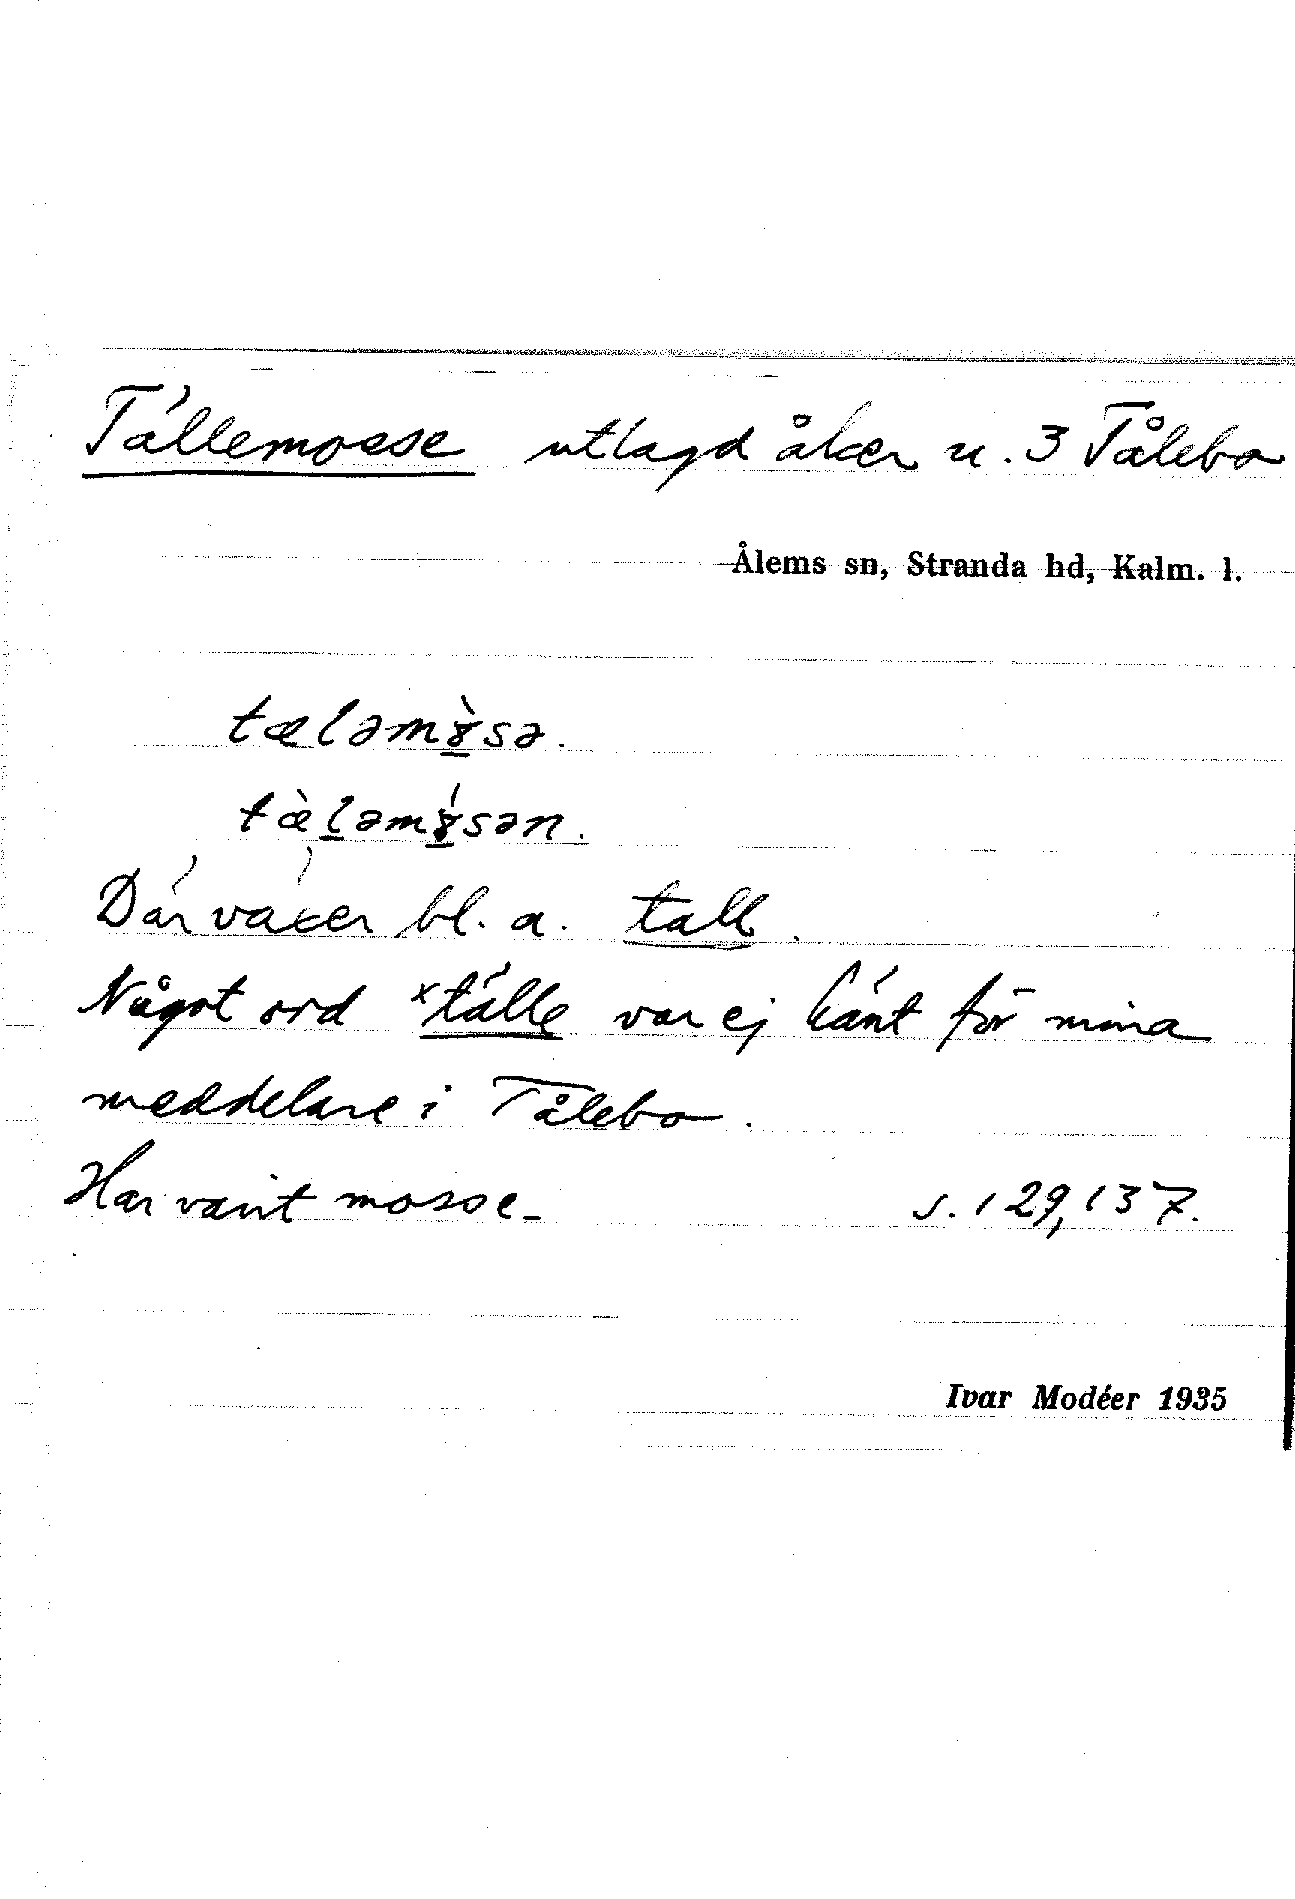 Tällemosse utlagd åker u. 3 Tålebo
Ålems sn, Stranda hd, Kalm. l.
tæləm&#x0300;ɤsə.
tæ̀ləmɤ́sən.
Där växer bl. a. tall.
Något ord ˣtälle var ej känt för mina
meddelare i Tålebo.
Har varit mosse. s. 129, 137.
Ivar Modéer 1935